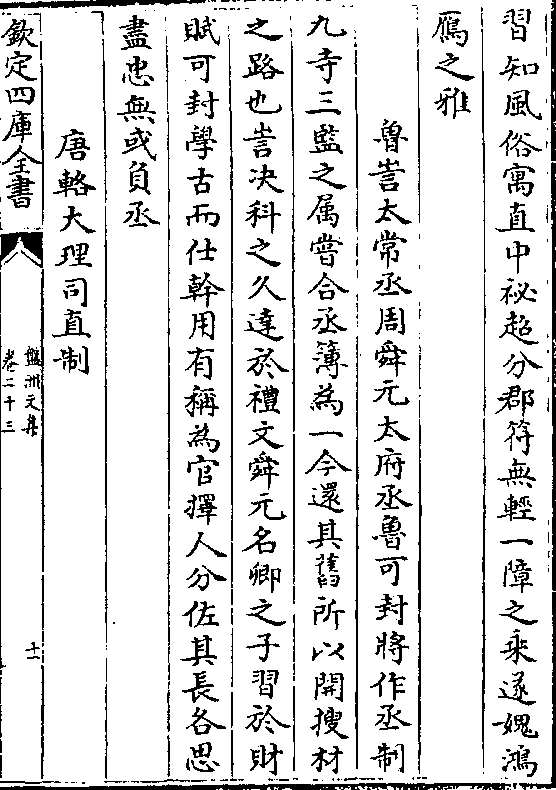 習知風俗寓直中祕超分郡符無輕一障之乗遂媿鴻
鴈之雅
魯訔太常丞周舜元太府丞魯可封將作丞制
九寺三監之属嘗合丞簿為一今還其舊所以開搜材
之路也訔决科之久達於禮文舜元名卿之子習於財
賦可封學古而仕幹用有稱為官擇人分佐其長各思
盡忠無或負丞
唐輅大理司直制
欽定四庫全書
盤洲文集
卷二十三
十一